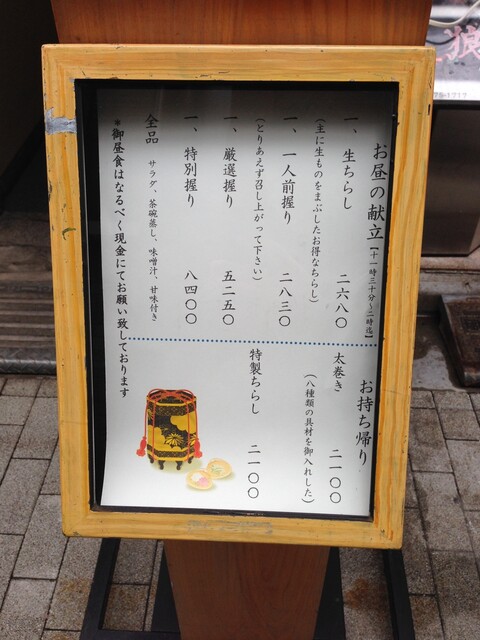 お昼の献立【十一時三十分〜二時迄】
一、生ちらし 二六八〇
（主に生ものをまぶしたお得なちらし）
一、一人前握り 二八三〇
（とりあえず召し上がって下さい）
一、厳選握り 五二五〇
一、特別握り 八四〇〇
全品 サラダ、茶碗蒸し、味噌汁、甘味付き
＊御昼食はなるべく現金にてお願い致しております
お持ち帰り
太巻き 二一〇〇
（八種類の具材を御入れした）
特製ちらし 二一〇〇